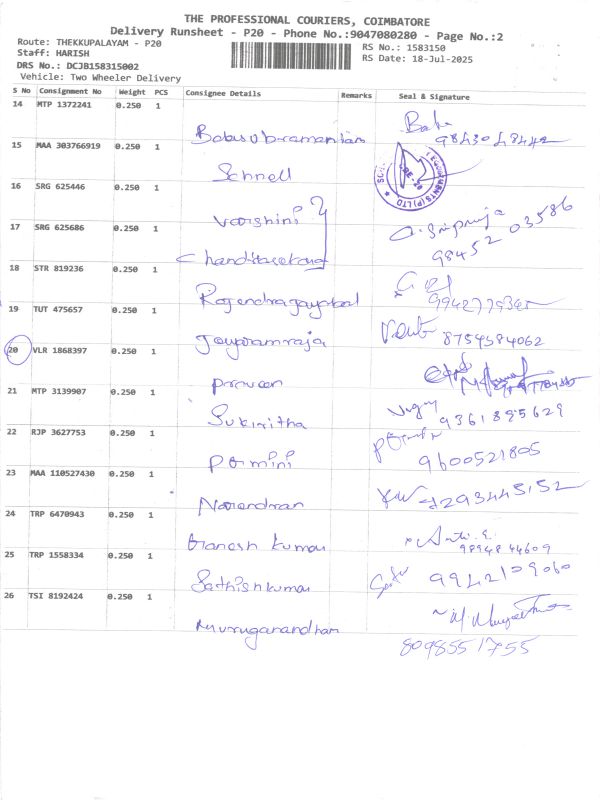 THE PROFESSIONAL COURIERS, COIMBATORE
Delivery Runsheet - P20 - Phone No.:9047080280 - Page No.:2
Route: THEKKUPALAYAM - P20
RS No.: 1583150
Staff: HARISH
RS Date: 18-Jul-2025
DRS No.: DCJB158315002
Vehicle: Two Wheeler Delivery
S No Consignment No Weight PCS Consignee Details Remarks Seal & Signature
14 MTP 1372241 0.250 1
Babusubramanian
Babu
9843048442
15 MAA 303766919 0.250 1
Schnell
16 SRG 625446 0.250 1
Varshini
17 SRG 625686 0.250 1
Chandrasekaran
98452 03586
18 STR 819236 0.250 1
Rajendragopal
19 TUT 475657 0.250 1
Jayaramraja
8754584062
20 VLR 1868397 0.250 1
Praveen
21 MTP 3139907 0.250 1
Sukiritha
9361895629
22 RJP 3627753 0.250 1
Pormini
9600521805
23 MAA 110527430 0.250 1
Narendran
7293445152
24 TRP 6470943 0.250 1
Ganesh Kumar
98948 44609
25 TRP 1558334 0.250 1
Sathishkumar
9942109060
26 TSI 8192424 0.250 1
Muruganandham
8098551755